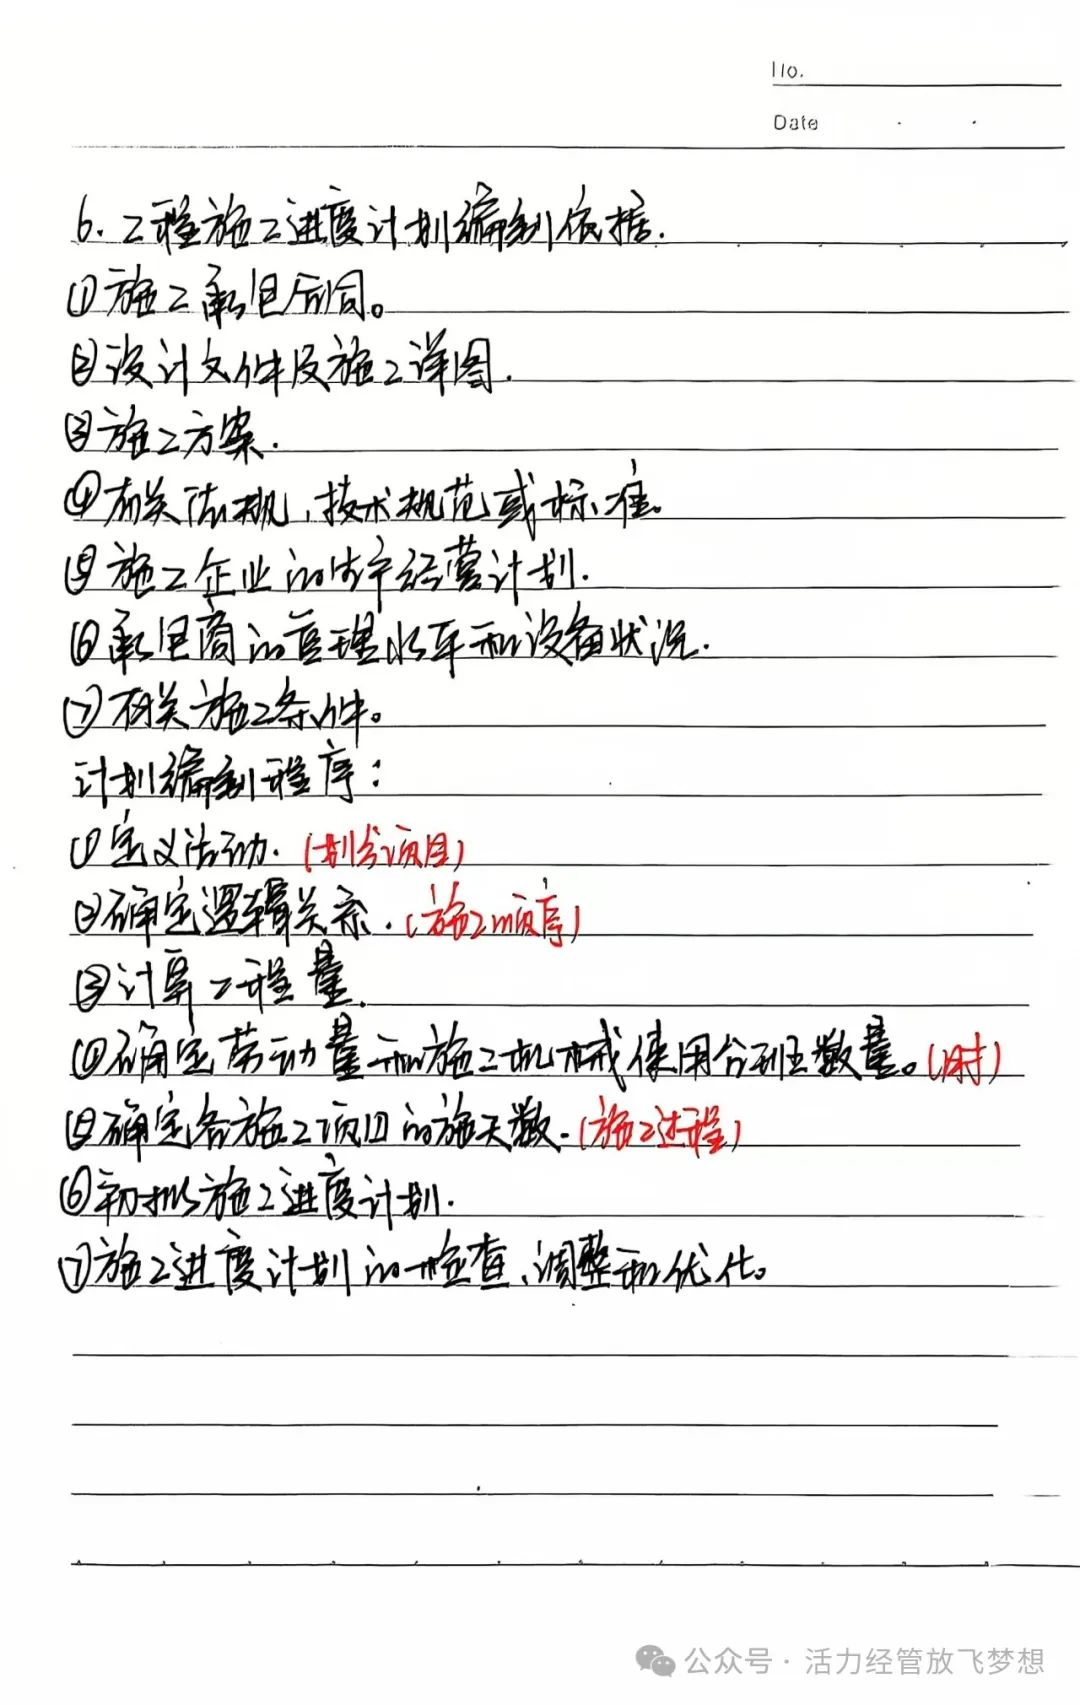 No.
Date
6. 工程施工进度计划编制依据.
①施工承包合同。
②设计文件及施工详图.
③施工方案.
④有关法规、技术规范或标准。
⑤施工企业的生产经营计划.
⑥承包商的管理水平和设备状况.
⑦有关施工条件。
计划编制程序:
①定义活动. (划分项目)
②确定逻辑关系. (施工顺序)
③计算工程量.
④确定劳动量和施工机械使用台班数量。(时)
⑤确定各施工项目的施天数. (施工过程)
⑥初拟施工进度计划.
⑦施工进度计划的检查、调整和优化。
公众号·活力经管放飞梦想